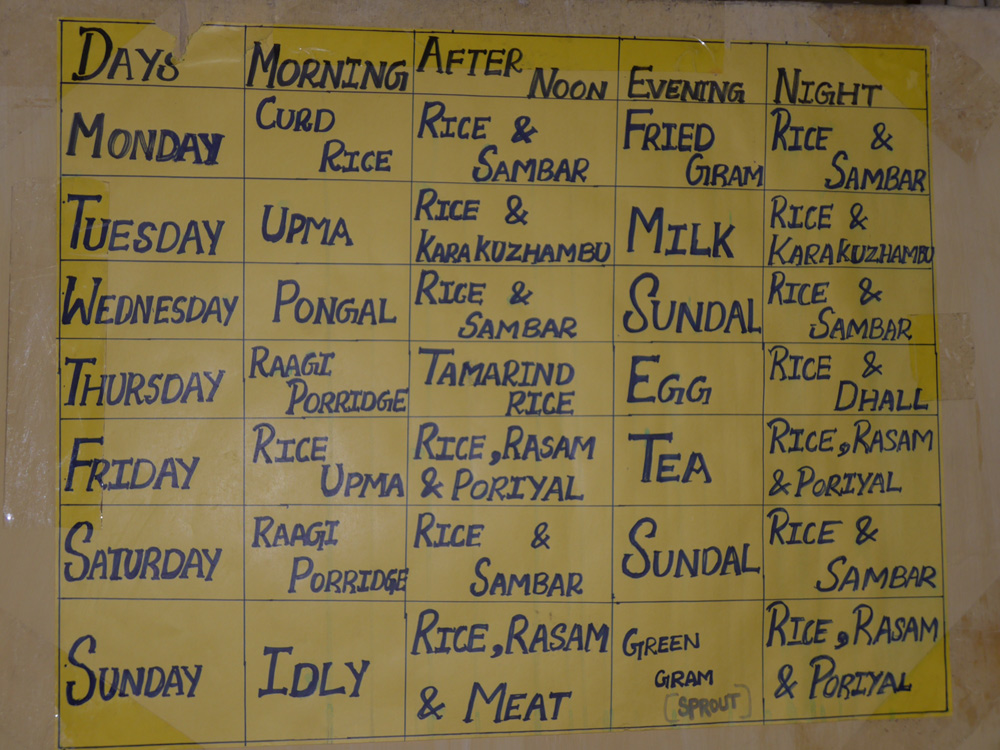 DAYS MORNING AFTER NOON EVENING NIGHT
MONDAY CURD RICE RICE & SAMBAR FRIED GRAM RICE & SAMBAR
TUESDAY UPMA RICE & KARAKUZHAMBU MILK RICE & KARAKUZHAMBU
WEDNESDAY PONGAL RICE & SAMBAR SUNDAL RICE & SAMBAR
THURSDAY RAAGI PORRIDGE TAMARIND RICE EGG RICE & DHALL
FRIDAY RICE UPMA RICE, RASAM & PORIYAL TEA RICE, RASAM & PORIYAL
SATURDAY RAAGI PORRIDGE RICE & SAMBAR SUNDAL RICE & SAMBAR
SUNDAY IDLY RICE, RASAM & MEAT GREEN GRAM [SPROUT] RICE, RASAM & PORIYAL